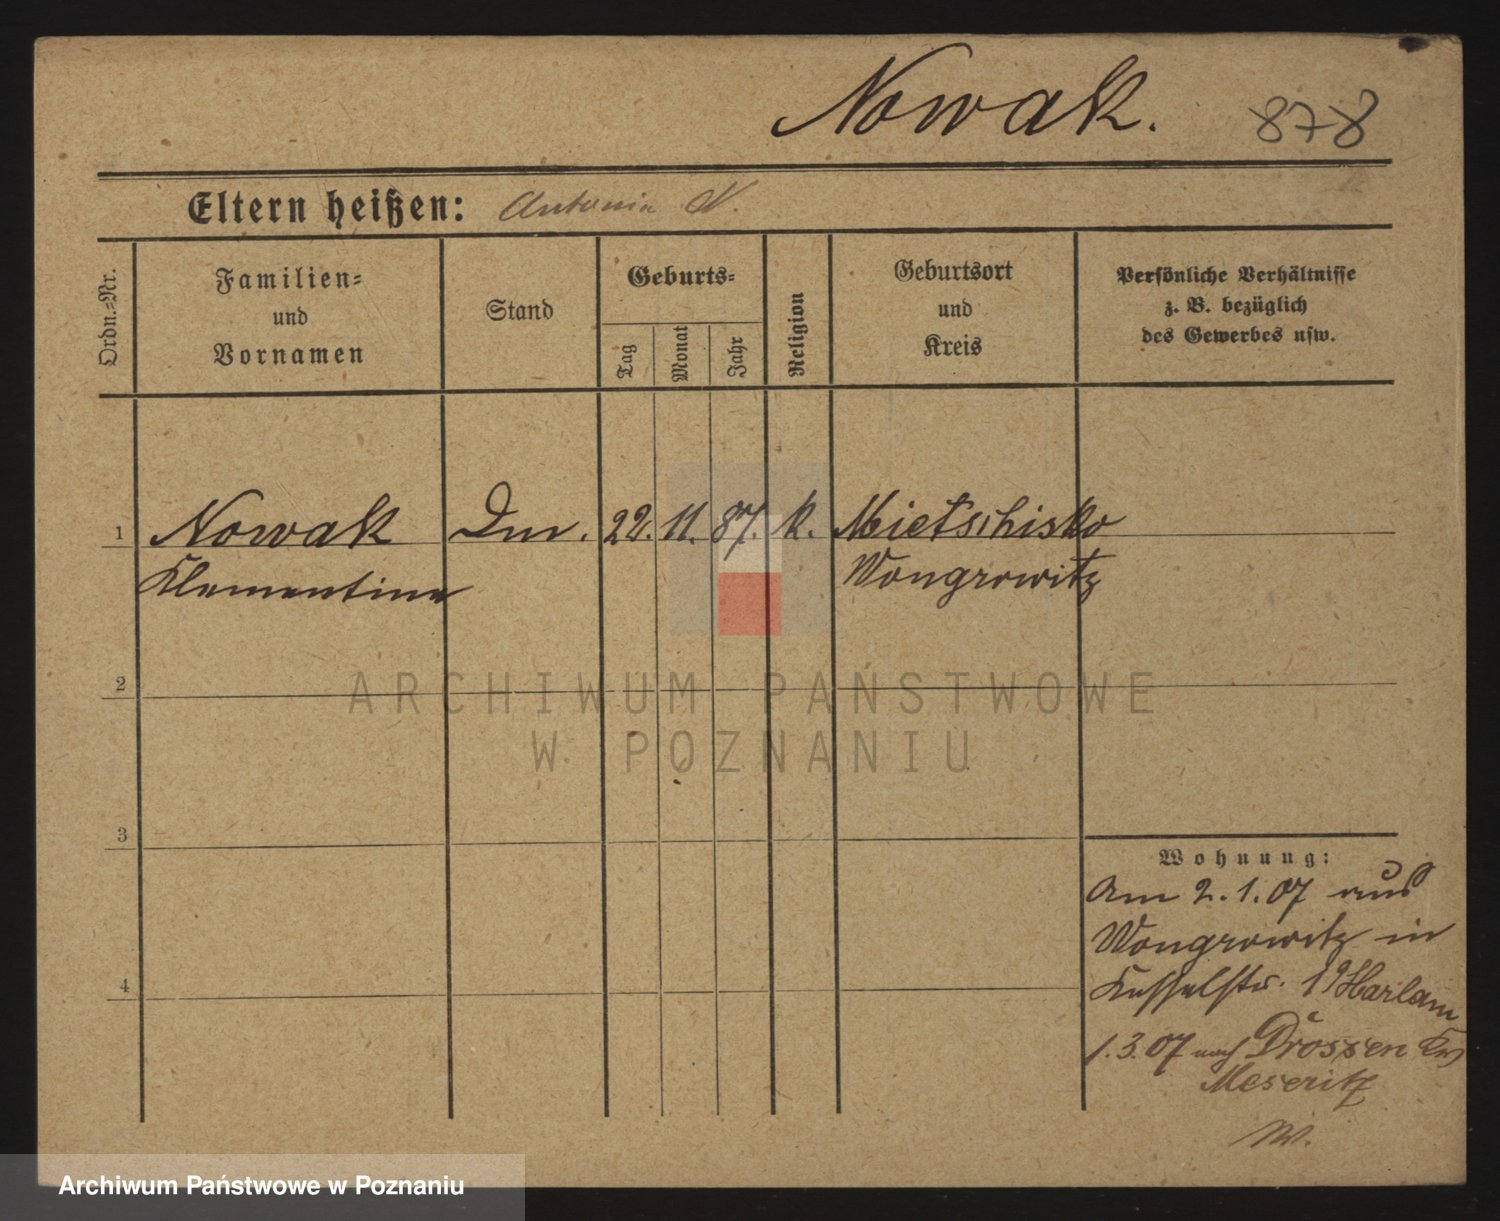 Nowak. 878
Eltern heißen: Antonia N.
Ordn.-Nr.
Familien-
und
Vornamen
Stand
Geburts-
Tag
Monat
Jahr
Religion
Geburtsort
und
Kreis
Persönliche Verhältnisse
z. B. bezüglich
des Gewerbes usw.
1 Nowak 22. 11. 87. k. Mietschisko
Klementine Wongrowitz
2
ARCHIWUM PAŃSTWOWE
W POZNANIU
3
Wohnung:
Am 2.1.07 aus
Wongrowitz in
4
1.3.07 nach Drossen
Meseritz
W.
Archiwum Państwowe w Poznaniu